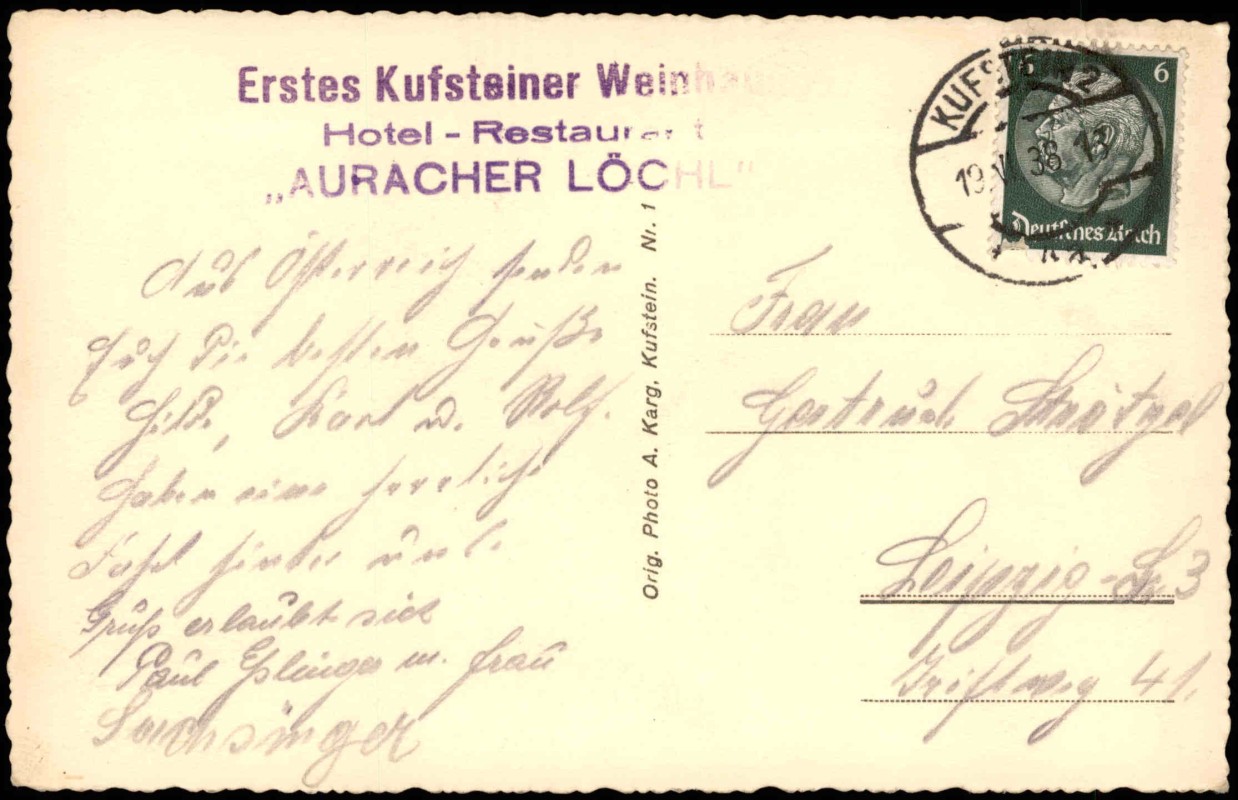 Erstes Kufsteiner Weinhaus
Hotel - Restaurant
„AURACHER LÖCHL"
KUFSTEIN 2
19.VI.38 13
6
Deutsches Reich
Aus Österreich senden
Euch die besten Grüße
Hilde, Karl u. Rolf.
Haben eine herrliche
Fahrt hinter uns.
Gruß erlaubt sich
Paul Eßlinger u. Frau
Orig. Photo A. Karg, Kufstein. Nr. 1
Frau
Gertrud
Leipzig - 3
Triftweg 41.